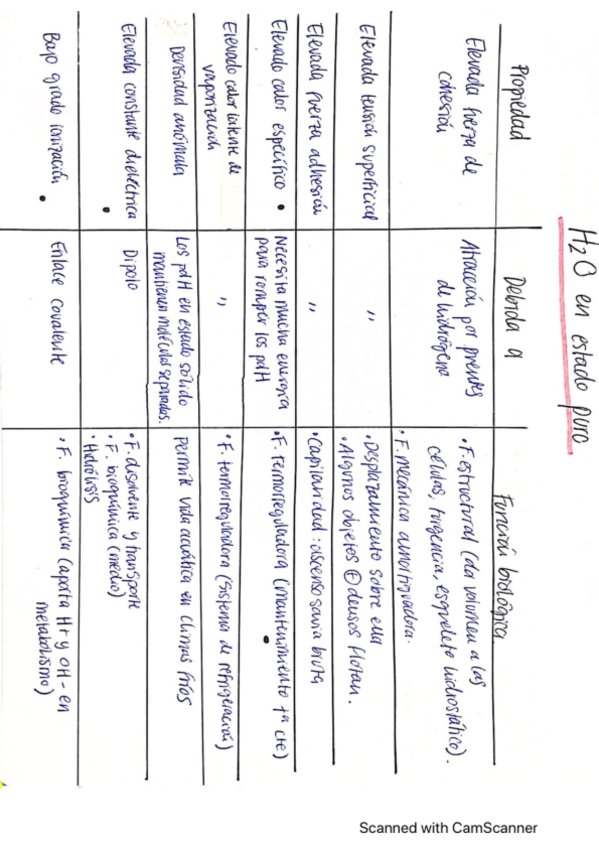 H2O en estado puro
Propiedad
Debida a
Función biológica
Elevada fuerza de
cohesión
Atracción por puentes
de hidrógeno
• F. estructural (dar volumen a las
células, turgencia, esqueleto hidrostático).
• F. mecánica amortiguadora.
Elevada tensión superficial
"
• Desplazamiento sobre ella
• Algunos objetos ⊕ densos flotan.
Elevada fuerza adhesión
"
• Capilaridad: ascenso savia bruta
Elevado calor específico •
Necesita mucha energía
para romper los pdH
• F. termorreguladora (mantenimiento tª cte)
Elevado calor latente de
vaporización
"
• F. termorreguladora (sistema de refrigeración)
Densidad anómala
Los pdH en estado sólido
mantienen moléculas separadas.
Permite vida acuática en climas fríos
Elevada constante dieléctrica
Dipolo
• F. disolvente y transporte
• F. bioquímica (medio)
• Hidrólisis
Bajo grado ionización
Enlace covalente
• F. bioquímica (aporta H+ y OH- en
metabolismo)
Scanned with CamScanner